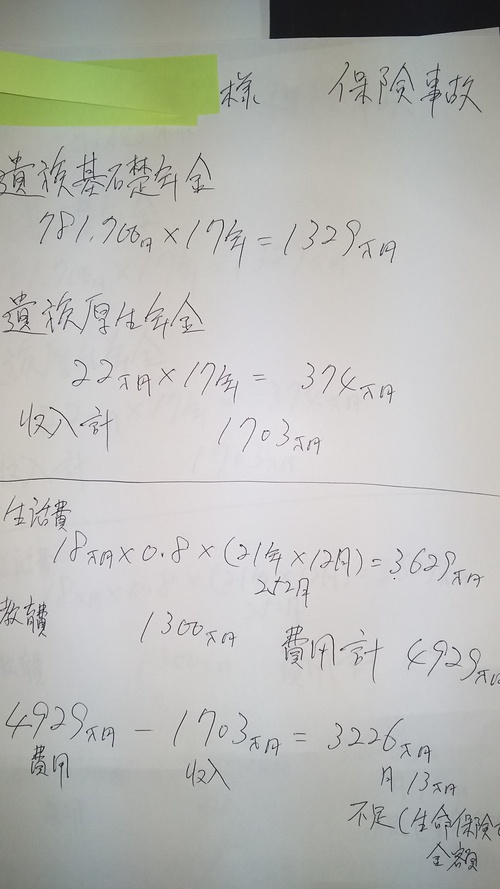 様 保険事故
遺族基礎年金
781.700円×17年=1329万円
遺族厚生年金
22万円×17年= 374万円
収入計 1703万円
生活費
18万円×0.8×(21年×12月)=3629万円
252月
教育費 1300万円 費用計 4929万円
4929万円 - 1703万円 = 3226万円
費用 収入 月13万円
不足(生命保険
金額